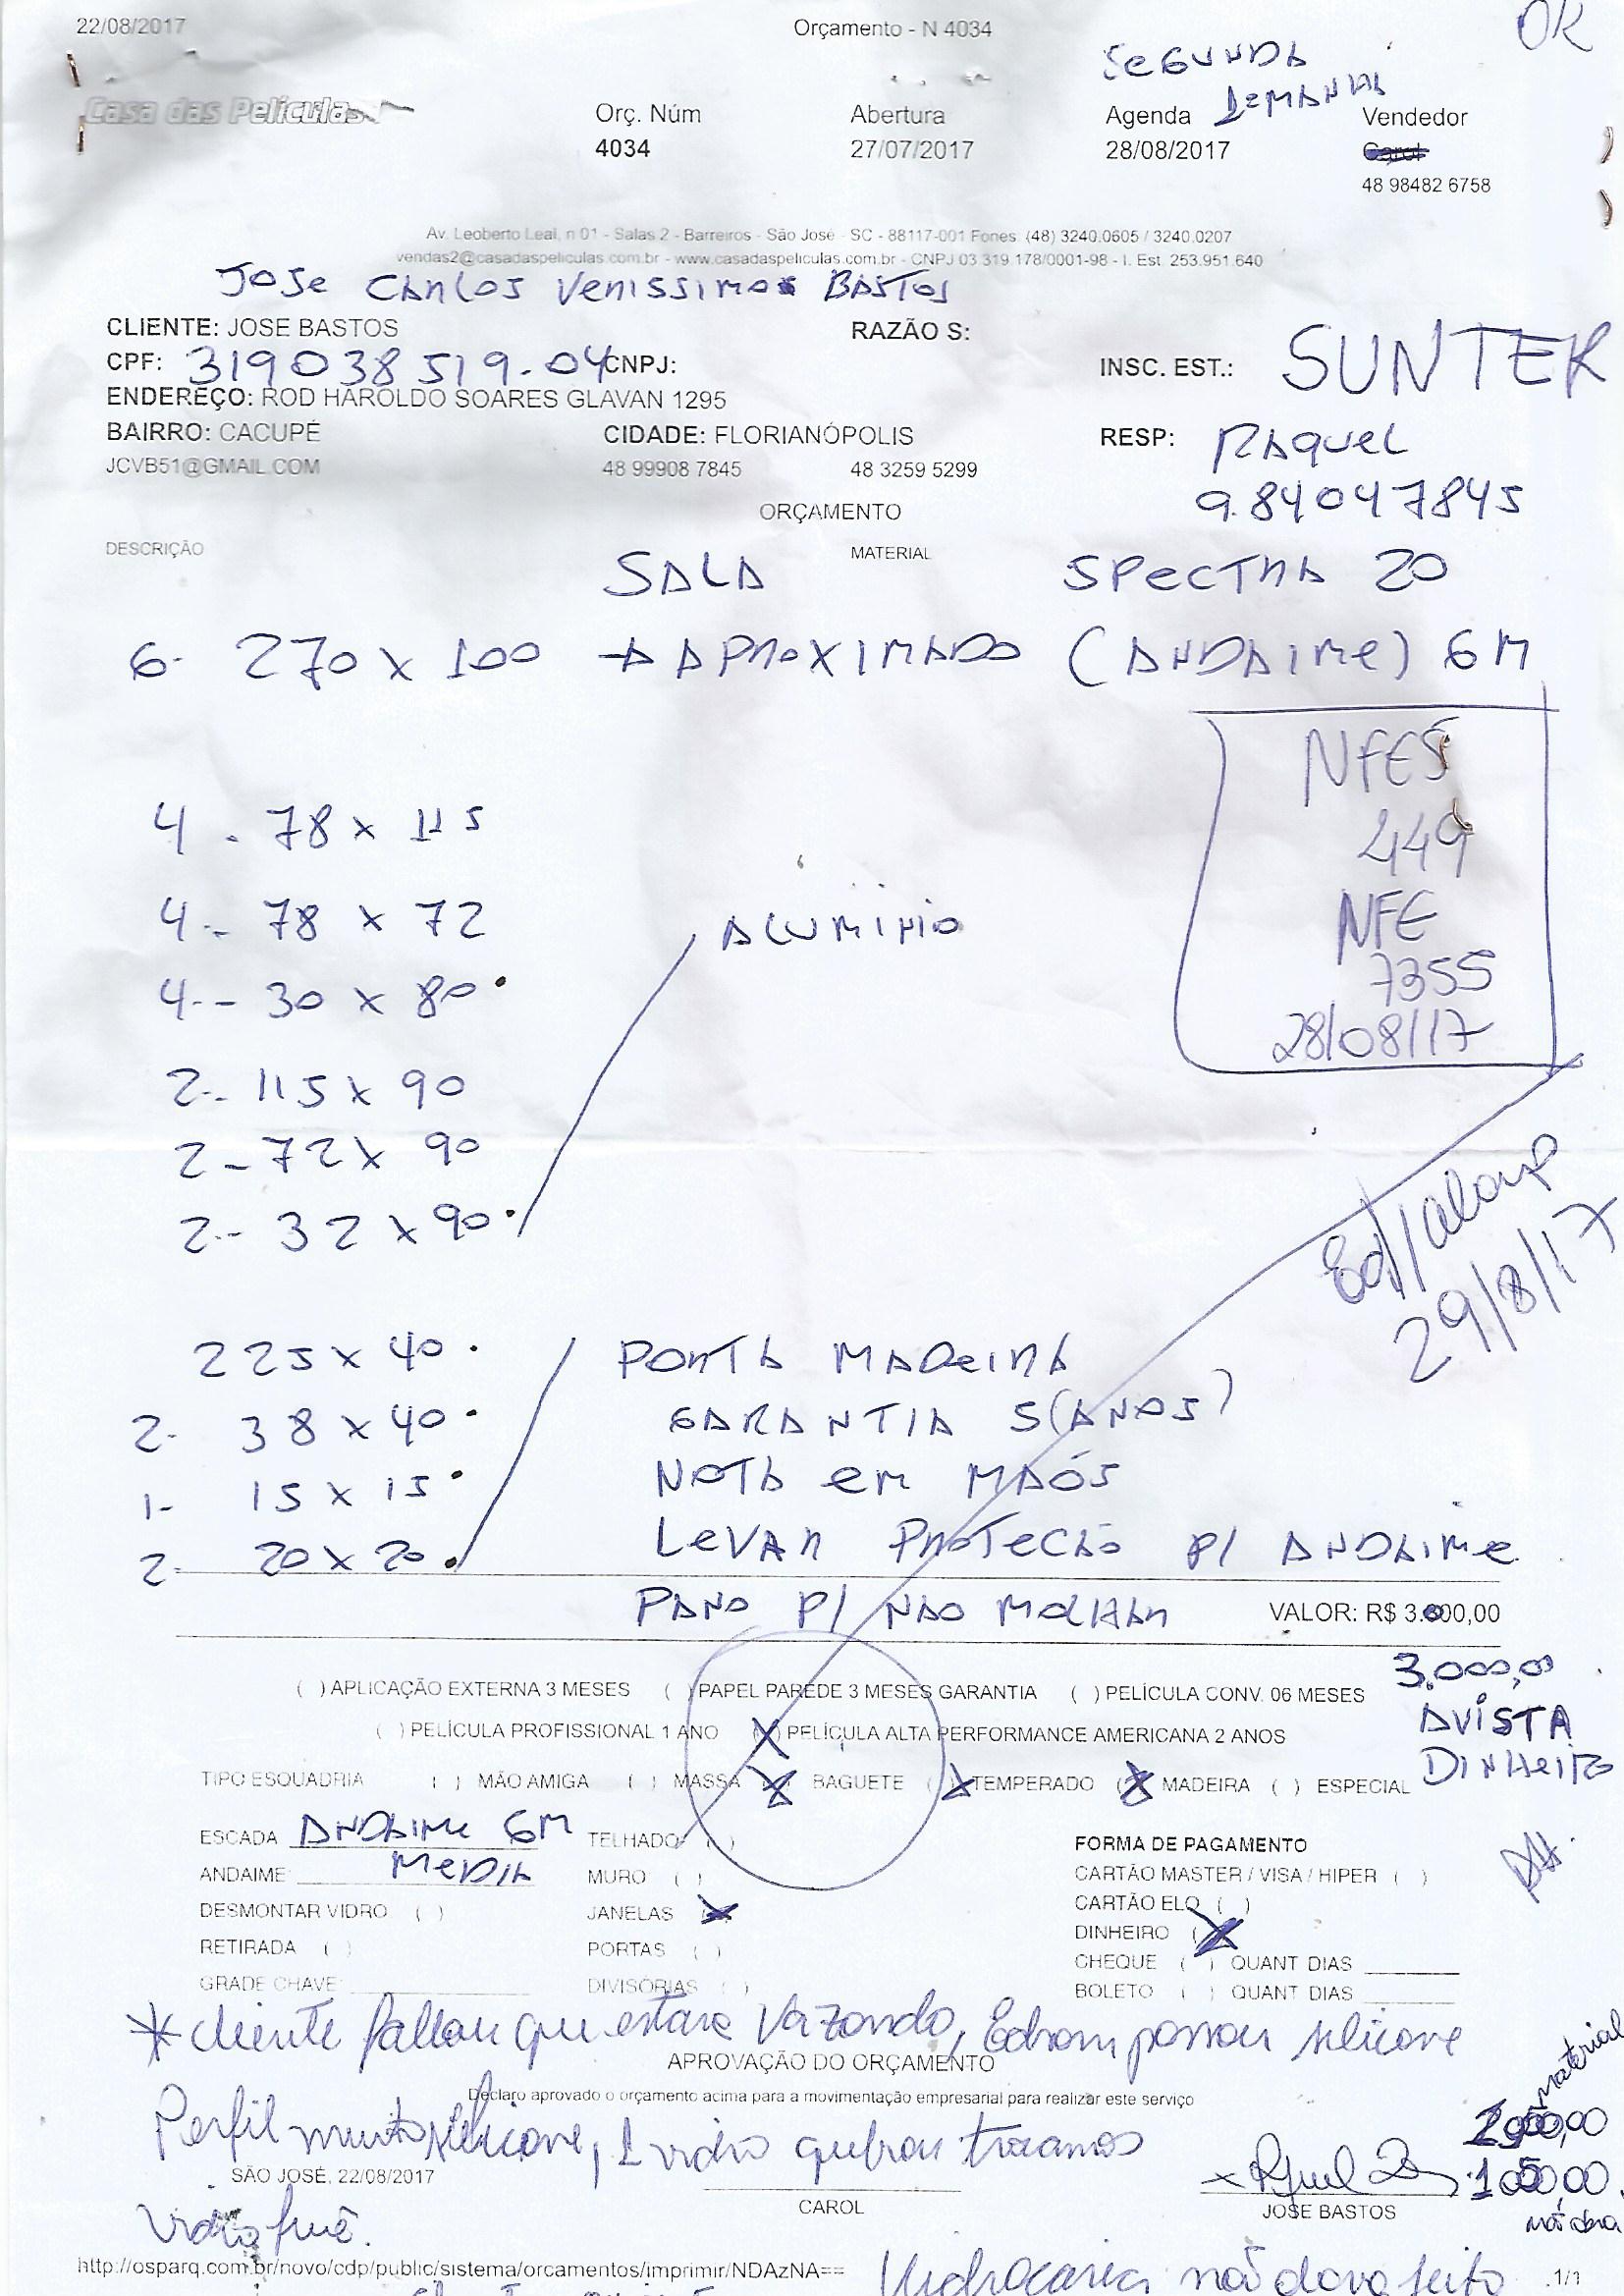 22/08/2017 Orçamento - N 4034 OK
SEGUNDA
DEMANHA
Casa das Películas Orç. Núm Abertura Agenda Vendedor
4034 27/07/2017 28/08/2017 Carol
48 98482 6758
Av. Leoberto Leal, n 01 - Salas 2 - Barreiros - São José - SC - 88117-001 Fones: (48) 3240.0605 / 3240.0207
vendas2@casadaspeliculas.com.br - www.casadaspeliculas.com.br - CNPJ 03.319.178/0001-98 - I. Est. 253.951.640
JOSE CARLOS VERISSIMO BASTOS
CLIENTE: JOSE BASTOS RAZÃO S:
CPF: 319038519-04 CNPJ: INSC. EST.: SUNTEK
ENDEREÇO: ROD HAROLDO SOARES GLAVAN 1295
BAIRRO: CACUPÉ CIDADE: FLORIANÓPOLIS RESP: RAQUEL
JCVB51@GMAIL.COM 48 99908 7845 48 3259 5299 9.84047845
ORÇAMENTO
DESCRIÇÃO MATERIAL
SALA SPECTRA 20
6- 270 x 100 → APROXIMADO (ANDAIME) 6M
NFES
4 - 78 x 115 449
4 - 78 x 72 ALUMINIO NFE
4 - 30 x 80 7355
2 - 115 x 90 28/08/17
2 - 72 x 90
2 - 32 x 90
29/8/17
225 x 40 PORTA MADEIRA
2- 38 x 40 GARANTIA 5(ANOS)
1- 15 x 15 NOTA EM MAÓS
2- 20 x 20 LEVAR PROTECÃO P/ ANDAIME
PANO P/ NAO MOLHAR VALOR: R$ 3.000,00
3.000,00
( ) APLICAÇÃO EXTERNA 3 MESES ( ) PAPEL PAREDE 3 MESES GARANTIA ( ) PELÍCULA CONV. 06 MESES
AVISTA
( ) PELÍCULA PROFISSIONAL 1 ANO (X) PELÍCULA ALTA PERFORMANCE AMERICANA 2 ANOS
DINHEIRO
TIPO ESQUADRIA ( ) MÃO AMIGA ( ) MASSA (X) BAGUETE (X) TEMPERADO (X) MADEIRA ( ) ESPECIAL
ESCADA ANDAIME 6M TELHADO ( ) FORMA DE PAGAMENTO
ANDAIME MEDIA MURO ( ) CARTÃO MASTER / VISA / HIPER ( )
DESMONTAR VIDRO ( ) JANELAS (X) CARTÃO ELO ( )
RETIRADA ( ) PORTAS ( ) DINHEIRO (X)
GRADE CHAVE DIVISÓRIAS ( ) CHEQUE ( ) QUANT DIAS
BOLETO ( ) QUANT DIAS
* cliente fallou que estava Vazando, Edson passou silicone
APROVAÇÃO DO ORÇAMENTO
Declaro aprovado o orçamento acima para a movimentação empresarial para realizar este serviço
material
Perfil muito silicone, 1 vidro quebrou trocamos
SÃO JOSÉ, 22/08/2017
CAROL JOSE BASTOS
mão obra
http://osparq.com.br/novo/cdp/public/sistema/orcamentos/imprimir/NDAzNA== 1/1